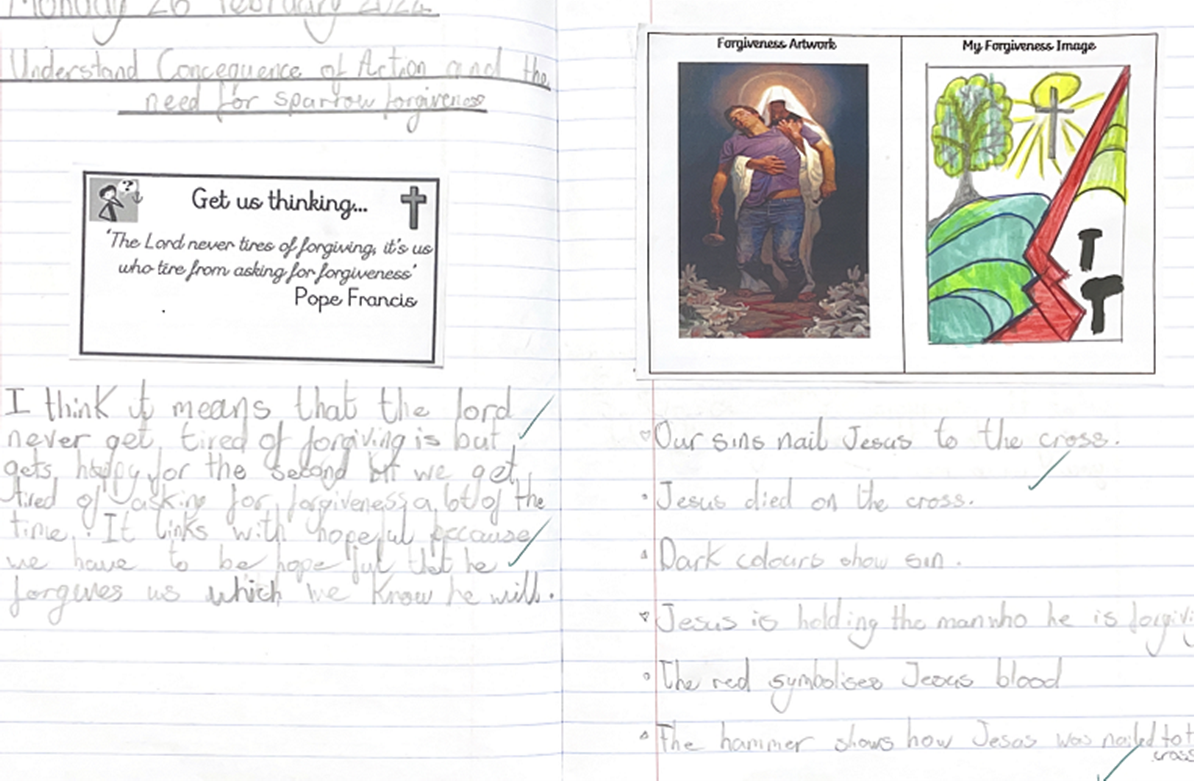 Monday 26 February 2024
Understand Concequence of Action and the
need for sparrow forgiveness
Get us thinking...
'The Lord never tires of forgiving, it's us
who tire from asking for forgiveness'
Pope Francis
I think it means that the lord
never get tired of forgiving is but
gets happy for the second bit we get
tired of asking for forgiveness a lot of the
time. It links with hopeful because
we have to be hopeful that he
forgives us which we know he will.
Forgiveness Artwork
My Forgiveness Image
Our sins nail Jesus to the cross.
Jesus died on the cross.
Dark colours show sin.
Jesus is holding the man who he is forgivi
The red symbolises Jesus blood
The hammer shows how Jesus was nailed to t
cross